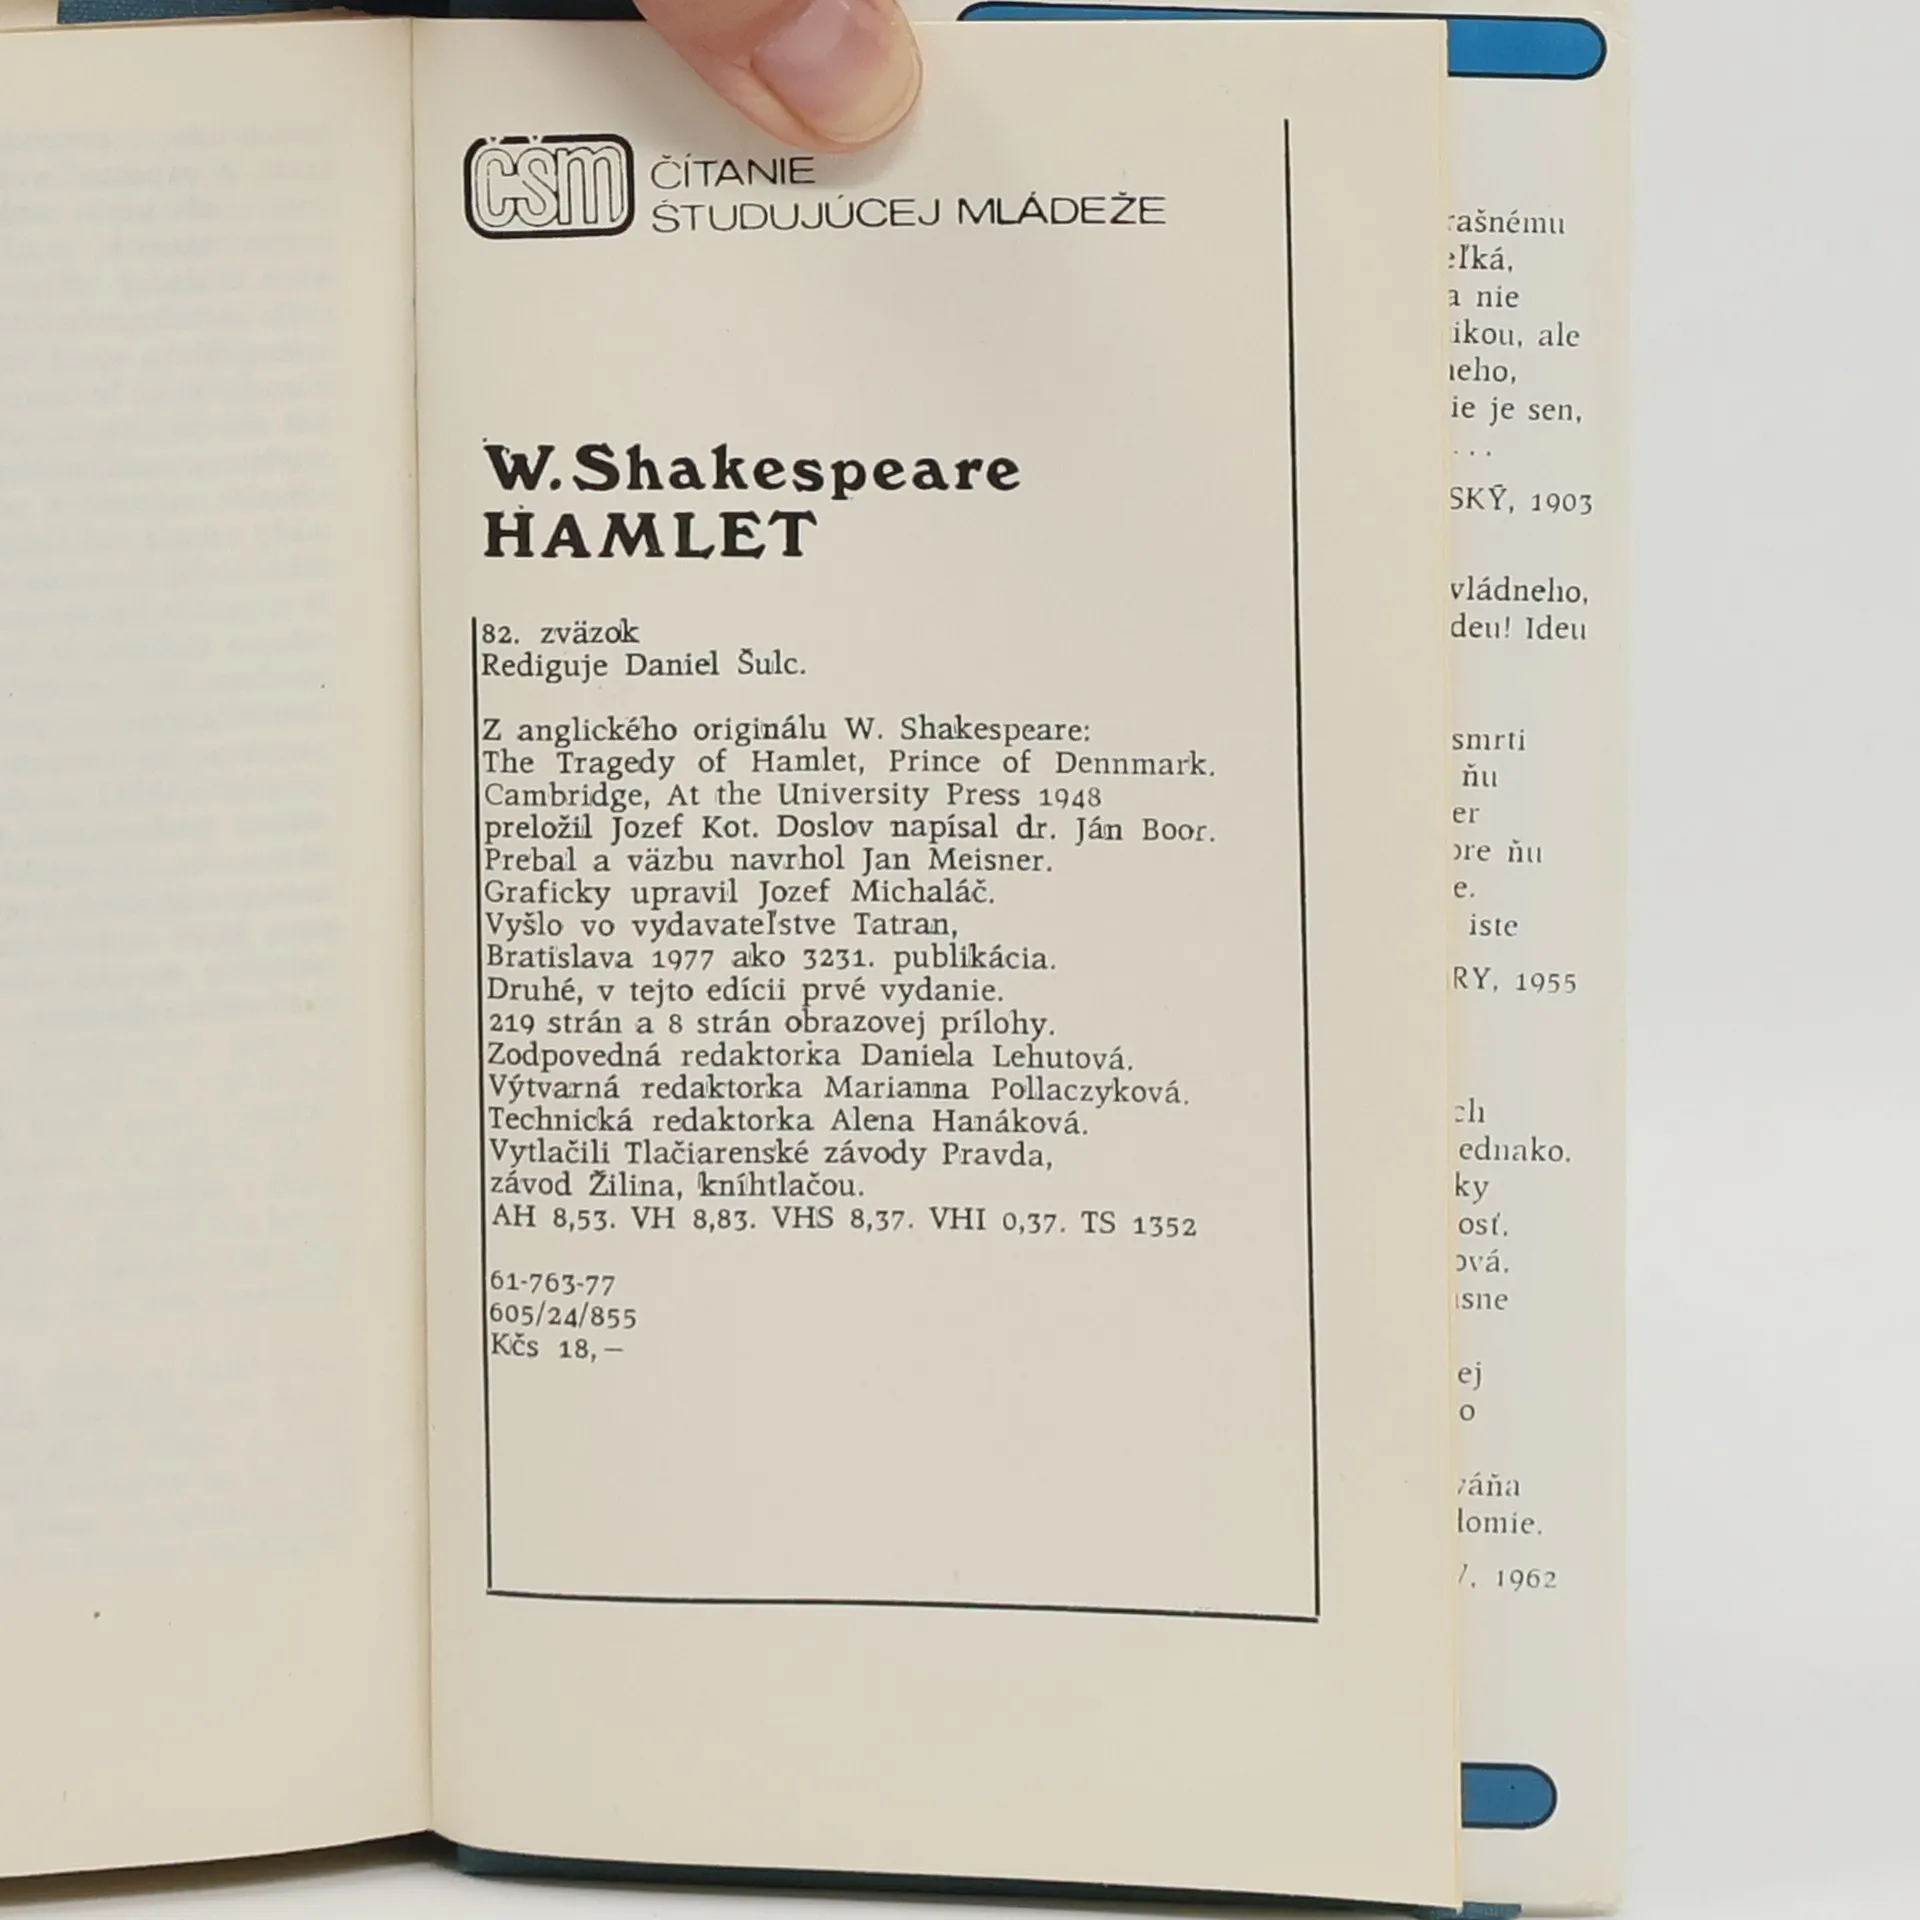 ČŠM
ČÍTANIE
ŠTUDUJÚCEJ MLÁDEŽE
W. Shakespeare
HAMLET
82. zväzok
Rediguje Daniel Šulc.
Z anglického originálu W. Shakespeare:
The Tragedy of Hamlet, Prince of Dennmark.
Cambridge, At the University Press 1948
preložil Jozef Kot. Doslov napísal dr. Ján Boor.
Prebal a väzbu navrhol Jan Meisner.
Graficky upravil Jozef Michaláč.
Vyšlo vo vydavateľstve Tatran,
Bratislava 1977 ako 3231. publikácia.
Druhé, v tejto edícii prvé vydanie.
219 strán a 8 strán obrazovej prílohy.
Zodpovedná redaktorka Daniela Lehutová.
Výtvarná redaktorka Marianna Pollaczyková.
Technická redaktorka Alena Hanáková.
Vytlačili Tlačiarenské závody Pravda,
závod Žilina, kníhtlačou.
AH 8,53. VH 8,83. VHS 8,37. VHI 0,37. TS 1352
61-763-77
605/24/855
Kčs 18,—
nie
ale
je sen,
...
1903
vládneho,
Ideu
smrti
ňu
ňu
iste
1955
1962